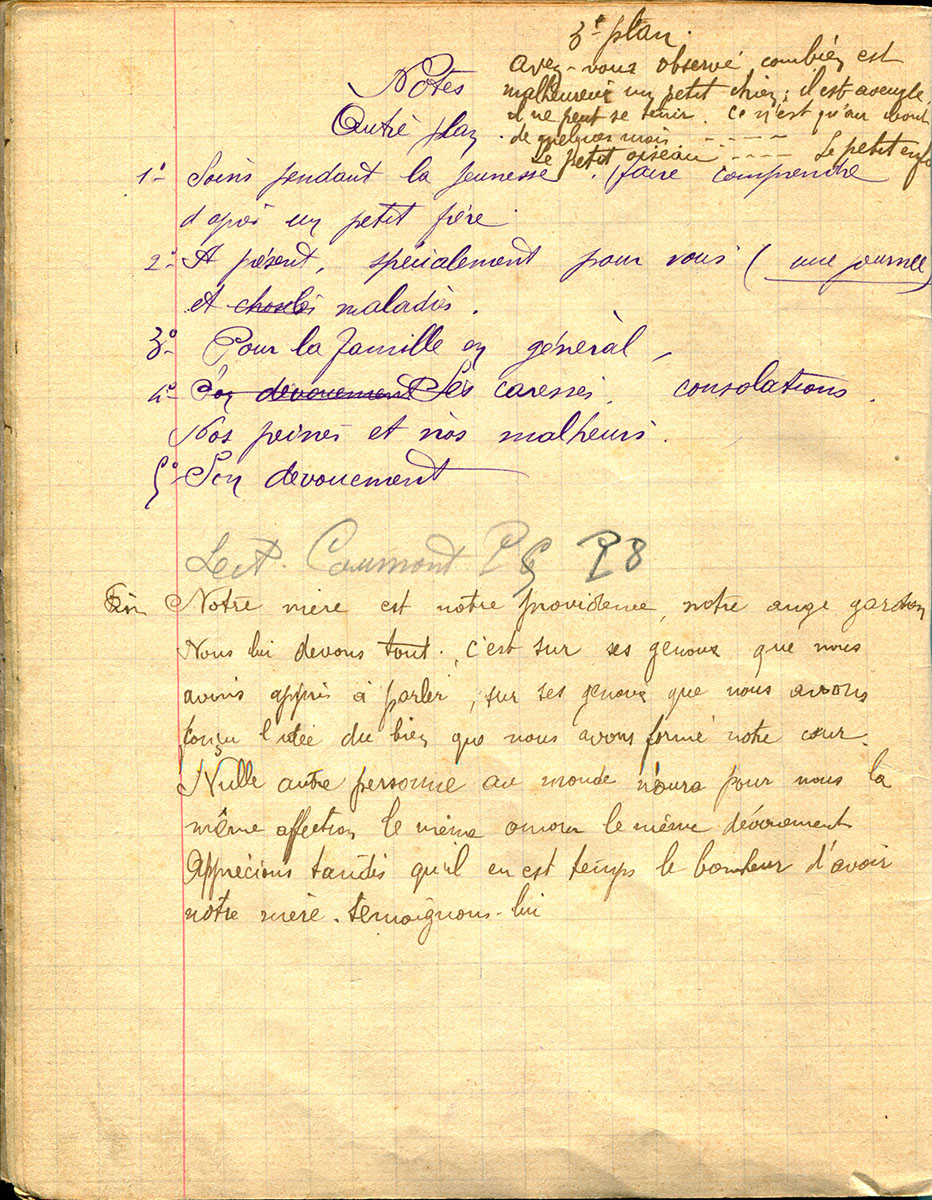 3e plan.
avez-vous observé combien est
malheureux un petit chien ; il est aveugle
il ne peut se tenir. Ce n'est qu'au bout
de quelques mois - - - - -
Le petit oiseau - - - - Le petit enfa
Notes
Autre plan.
1º- Soins pendant la jeunesse. faire comprendre
d'après un petit frère.
2º- A présent, spécialement pour vous ( une journée)
et maladies.
3º- Pour la famille en général -
4º- Son dévouement Ses caresses, consolations.
Nos peines et nos malheurs.
5º- Son devouement
Lect. Caumont P 8
Fin Notre mère est notre providence, notre ange gardien
Nous lui devons tout. c'est sur ses genoux que nous
avons appris à parler, sur ses genoux que nous avons
conçu l'idée du bien que nous avons formé notre cœur.
Nulle autre personne au monde n'aura pour nous la
même affection le même amour le même dévouement
Apprécions tandis qu'il en est temps le bonheur d'avoir
notre mère. temoignons-lui